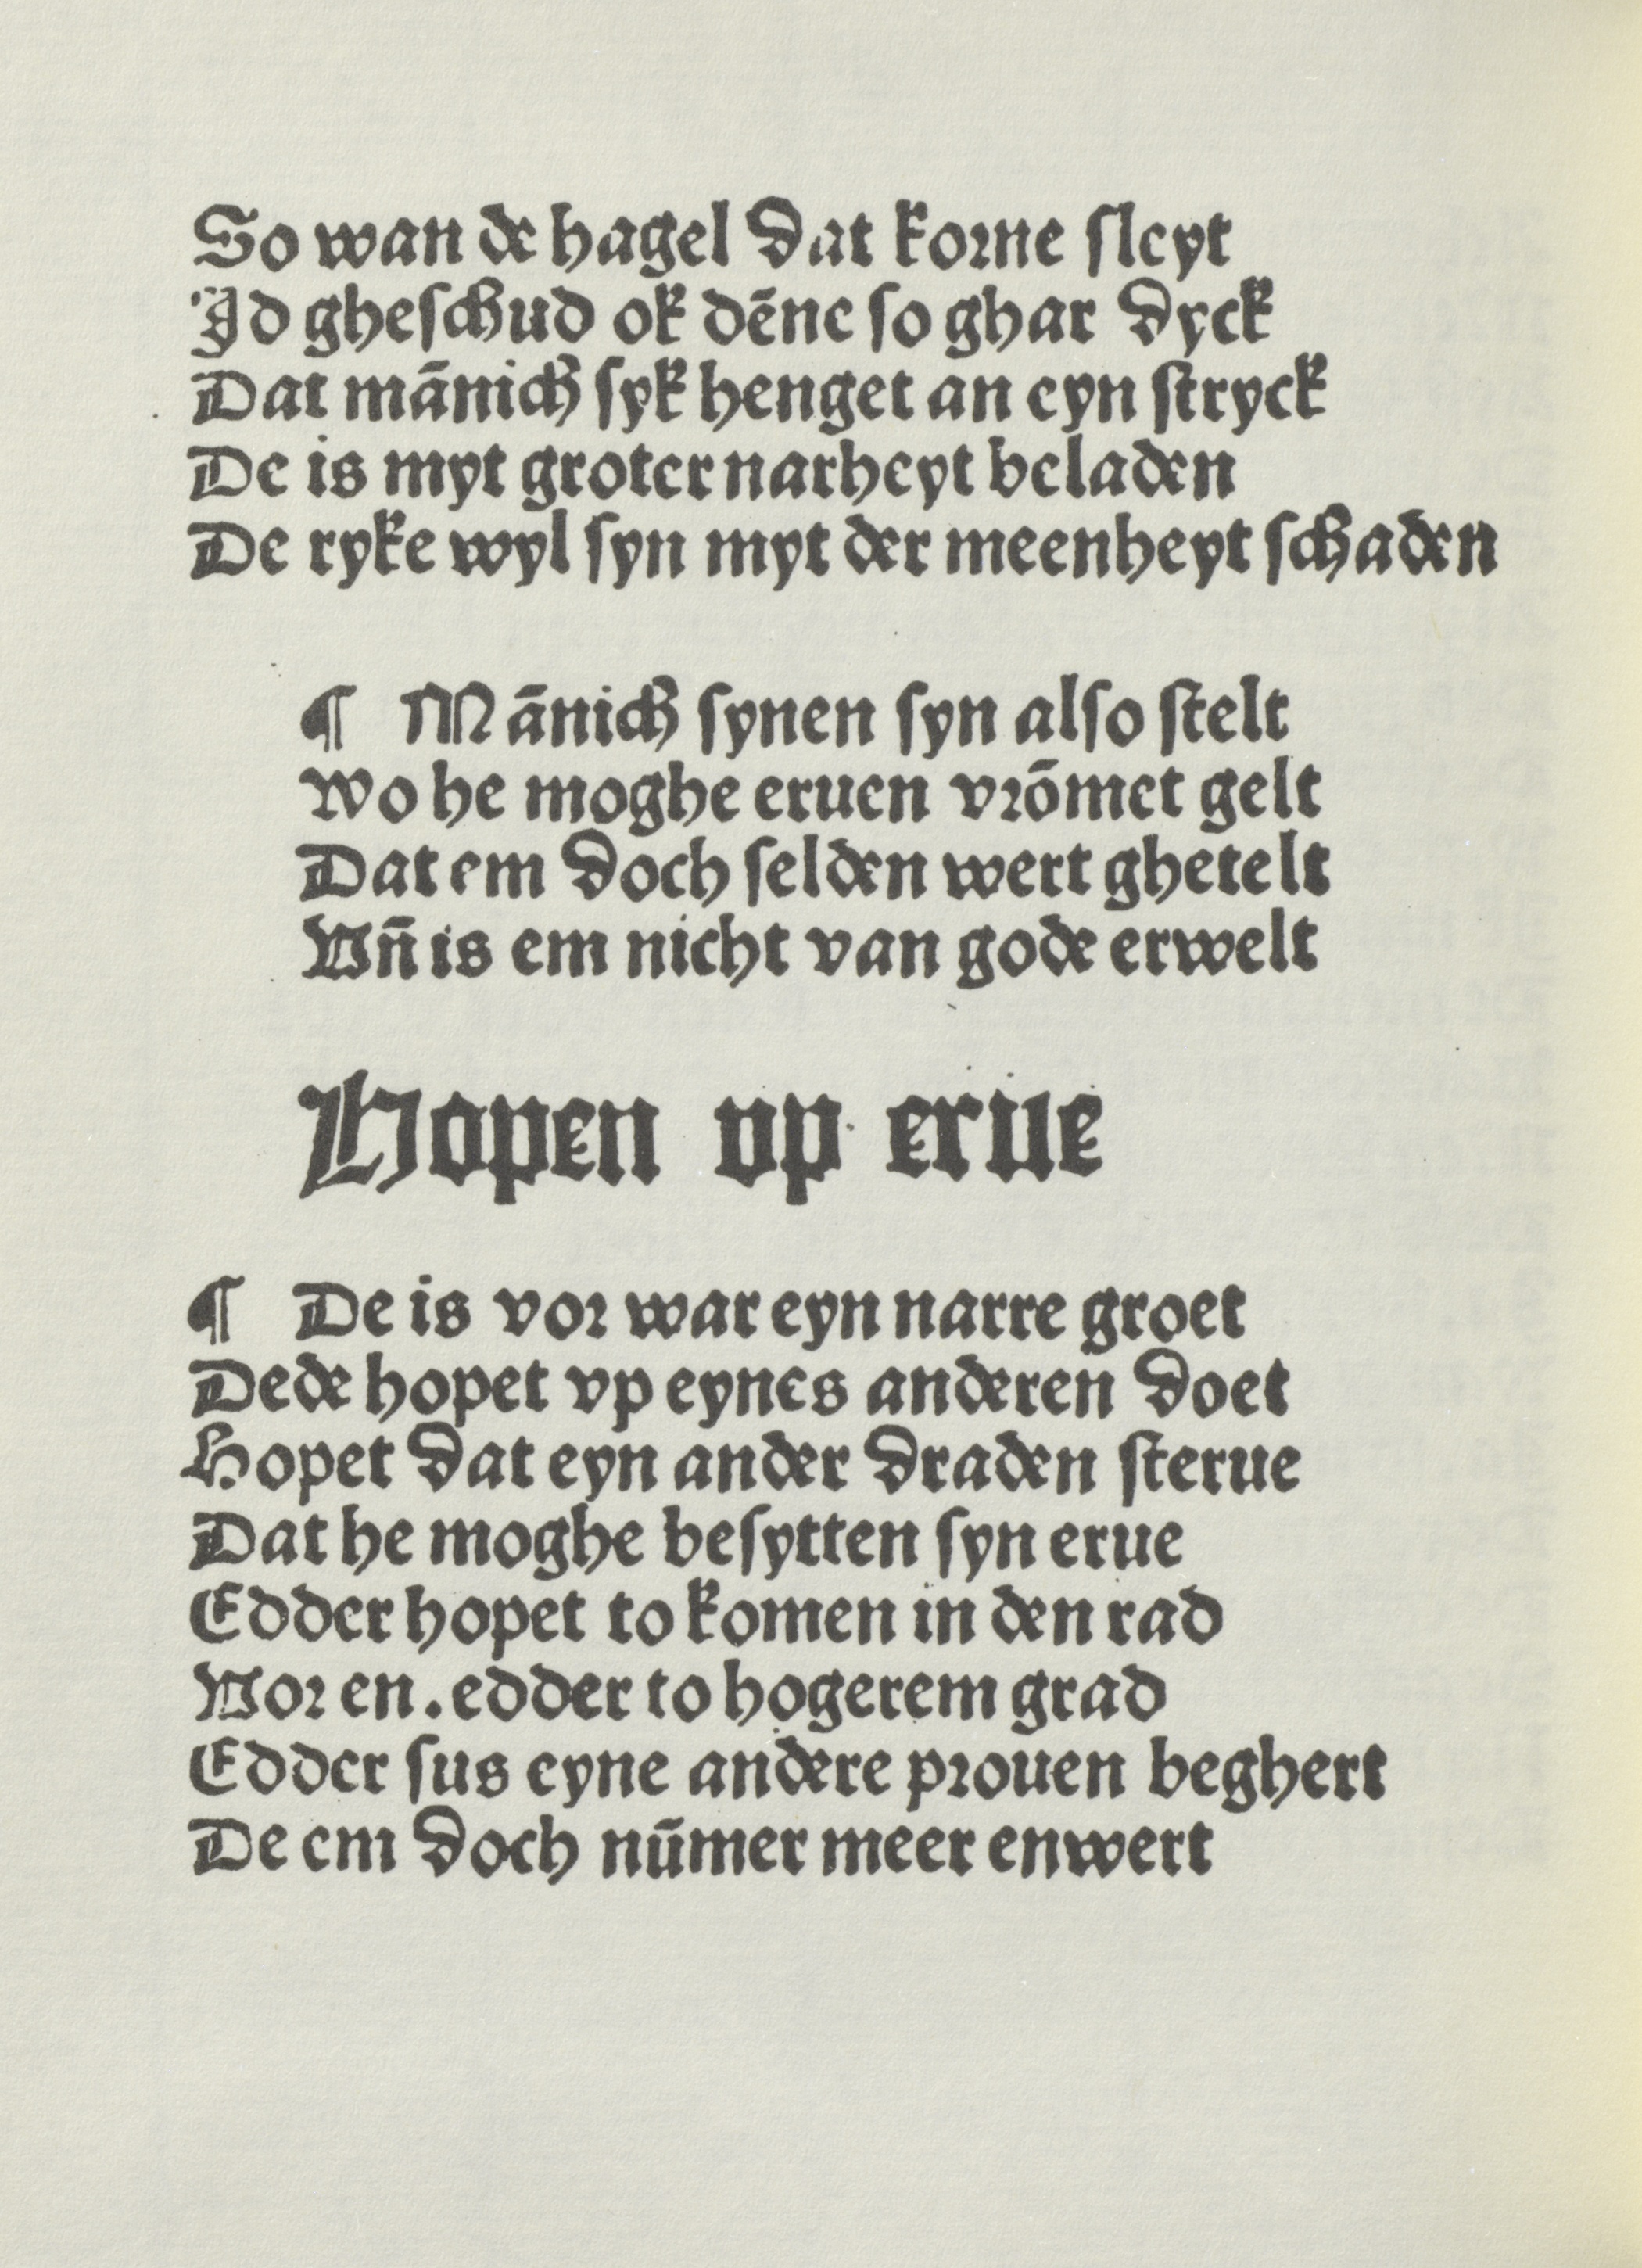 So wan de hagel dat korne sleyt
Jd gheschud ok dēne so ghar dyck
Dat mānich syk henget an eyn stryck
De is myt groter narheyt beladen
De ryke wyl syn myt der meenheyt schaden
¶ Mānich synen syn also stelt
Wo he moghe eruen vrōmet gelt
Dat em doch selden wert ghetelt
Vn̄ is em nicht van gode erwelt
Hopen vp erue
¶ De is vor war eyn narre groet
De de hopet vp eynes anderen doet
Hopet dat eyn ander draden sterue
Dat he moghe besytten syn erue
Edder hopet to komen in den rad
Vor en. edder to hogerem grad
Edder sus eyne andere prouen beghert
De em doch nūmer meer enwert